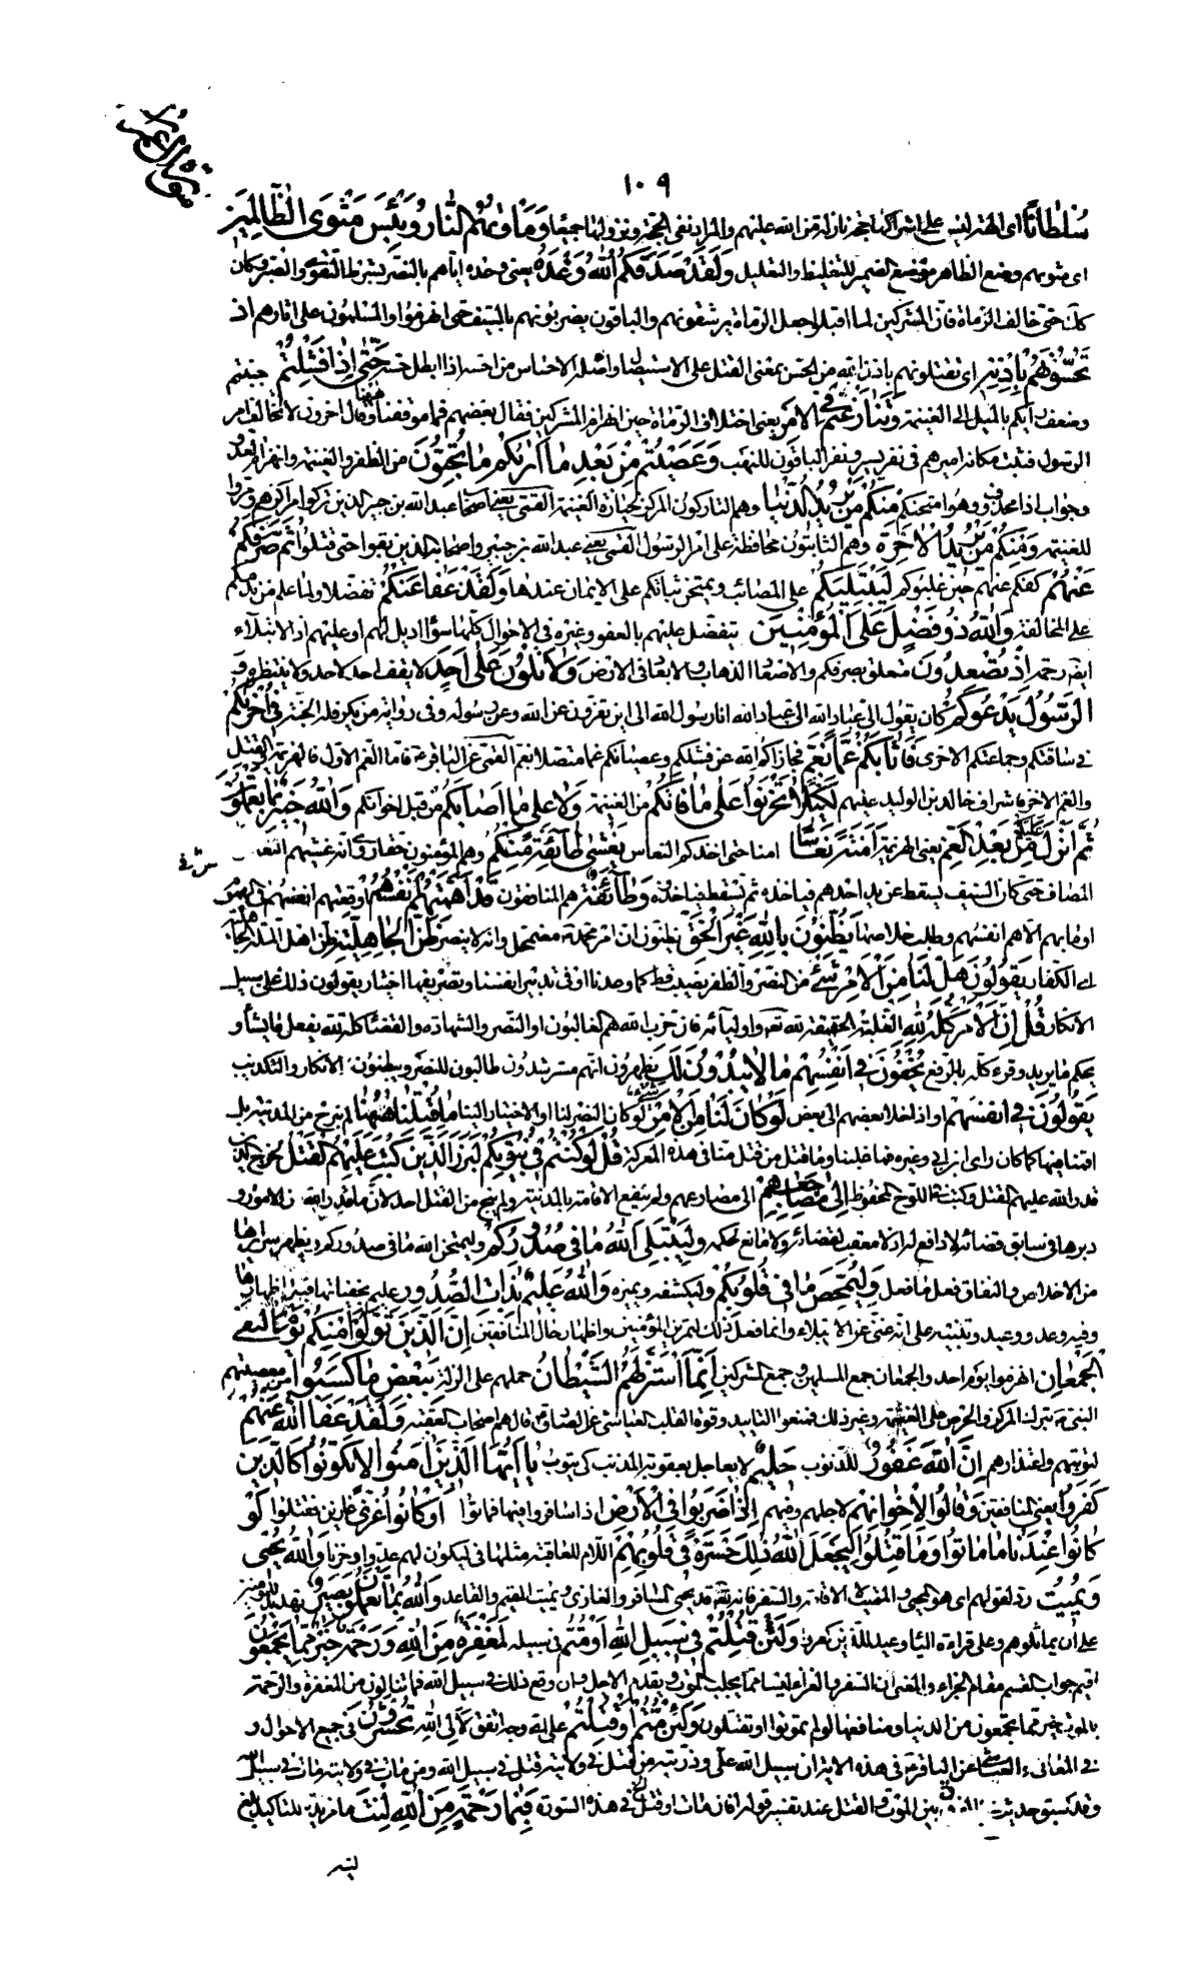 سورة آل عمران
١٠٩
سُلْطاناً اى الهة ليس على اشراكها حجة نازلة من الله عليهم والمراد نفى الحجة ونزولها جميعا وَمَأْوٰيهُمُ النّٰارُ وَبِئْسَ مَثْوَى الظّٰالِمِينَ
اى مثويهم وضع الظاهر موضع الضمير للتغليظ والتعليل وَلَقَدْ صَدَقَكُمُ اللّٰهُ وَعْدَهُ يعنى وعده اياهم بالنصر بشرط التقوى والصبر وكان
كك حتى خالف الرماة فان المشركين لما اقبلوا جعل الرماة يرشقونهم والباقون يضربونهم بالسيف حتى انهزموا والمسلمون على اثارهم اذ
تَحُسُّونَهُمْ بِإِذْنِهِ اى تقتلونهم باذن الله من الحس بمعنى القتل على الاستيصال واصله الاحساس من احسه اذا ابطل حسه حَتّٰى إِذٰا فَشِلْتُمْ جبنتم
وضعف رأيكم بالميل الى الغنيمة وَتَنٰازَعْتُمْ فِي الْأَمْرِ يعنى اختلاف الرماة حين انهزام المشركين فقال بعضهم فما موقفنا ههنا وقال اخرون لا نخالف امر
الرسول فثبت مكانه اميرهم فى نفر يسير ونفر الباقون للنهب وَعَصَيْتُمْ مِنْ بَعْدِ مٰا أَرٰيكُمْ مٰا تُحِبُّونَ من الظفر والغنيمة وانهزام العدو
وجواب اذا محذوف وهو امتحنكم مِنْكُمْ مَنْ يُرِيدُ الدُّنْيٰا وهم التاركون المركز لحيازة الغنيمة القمى يعنى اصحاب عبدالله بن جبير الذين تركوا مراكزهم ومروا
للغنيمة وَمِنْكُمْ مَنْ يُرِيدُ الْآخِرَةَ وهم الثابتون محافظة على امر الرسول القمى يعنى عبدالله بن جبير واصحابه الذين بقوا حتى قتلوا ثُمَّ صَرَفَكُمْ
عَنْهُمْ كفكم عنهم حين غلبوكم لِيَبْتَلِيَكُمْ على المصائب ويمتحن ثباتكم على الايمان عندها وَلَقَدْ عَفٰا عَنْكُمْ تفضلا ولما علم من ندمكم
على المخالفة وَاللّٰهُ ذُو فَضْلٍ عَلَى الْمُؤْمِنِينَ يتفضل عليهم بالعفو وغيره فى الاحوال كلها سواء اديل لهم او عليهم اذ الابتلاء
ايضا رحمة إِذْ تُصْعِدُونَ متعلق بصرفكم والاصعاد الذهاب والابعاد فى الارض وَلٰا تَلْوُونَ عَلىٰ أَحَدٍ لا يقف احد لاحد ولا ينتظره وَ
الرَّسُولُ يَدْعُوكُمْ كان يقول الى عباد الله الى عباد الله انا رسول الله الى اين تفرون عن الله وعن رسوله وفى رواية من يكر فله الجنة فِي أُخْرٰيكُمْ
فى ساقتكم وجماعتكم الاخرى فَأَثٰابَكُمْ غَمًّا بِغَمٍّ فجازاكم الله عن فشلكم وعصيانكم غما متصلا بغم القمى عن الباقر ع فاما الغم الاول فالهزيمة والقتل
والغم الاخر فاشراف خالد بن الوليد عليهم لِكَيْلٰا تَحْزَنُوا عَلىٰ مٰا فٰاتَكُمْ من الغنيمة وَلٰا على مٰا أَصٰابَكُمْ من قبل اخوانكم وَاللّٰهُ خَبِيرٌ بِمٰا تَعْمَلُونَ
ثُمَّ أَنْزَلَ عَلَيْكُمْ مِنْ بَعْدِ الْغَمِّ يعنى الهزيمة أَمَنَةً نُعٰاساً امنا حتى اخذكم النعاس يَغْشىٰ طٰائِفَةً مِنْكُمْ وهم المؤمنون حقا روى انه غشيهم النعاس فى
المصاف حتى كان السيف يسقط عن يد احدهم فياخذه ثم يسقط فياخذه وَطٰائِفَةٌ هم المنافقون قَدْ أَهَمَّتْهُمْ أَنْفُسُهُمْ اوقعتهم انفسهم فى الهموم
او ما بهم الا هم انفسهم وطلب خلاصها يَظُنُّونَ بِاللّٰهِ غَيْرَ الْحَقِّ يظنون ان امر محمد ص مضمحل وانه لا ينصر ظَنَّ الْجٰاهِلِيَّةِ ظن اهل الملة الجاهلية
اى الكفار يَقُولُونَ هَلْ لَنٰا مِنَ الْأَمْرِ مِنْ شَيْءٍ من النصر والظفر نصيب قط كما وعدنا او فى تدبير انفسنا وتصريفها اختيار يقولون ذلك على سبيل
الانكار قُلْ إِنَّ الْأَمْرَ كُلَّهُ لِلّٰهِ الغلبة الحقيقية لله تعالى واوليائه فان حزب الله هم الغالبون او النصر والشهادة والقضاء كله لله يفعل ما يشاء و
يحكم ما يريد وقرء كله بالرفع يُخْفُونَ فِي أَنْفُسِهِمْ مٰا لٰا يُبْدُونَ لَكَ يظهرون انهم مسترشدون طالبون للنصر ويبطنون الانكار والتكذيب
يَقُولُونَ فى انفسهم او اذا خلا بعضهم الى بعض لَوْ كٰانَ لَنٰا مِنَ الْأَمْرِ شَيْءٌ لو كان النصر لنا او الاختيار الينا مٰا قُتِلْنٰا هٰهُنٰا لم نبرح من المدينة بل
اقمنا فيها كما كان راى ابن ابى وغيره فما غلبنا وما قتل من قتل منا فى هذه المعركة قُلْ لَوْ كُنْتُمْ فِي بُيُوتِكُمْ لَبَرَزَ الَّذِينَ كُتِبَ عَلَيْهِمُ الْقَتْلُ لخرج الذين
قدر الله عليهم القتل وكتبه فى اللوح المحفوظ إِلىٰ مَضٰاجِعِهِمْ الى مصارعهم ولم ينفع الاقامة بالمدينة ولم ينج من القتل احد لانه قدر الامور و
دبرها فى سابق قضائه لا دافع لمراده لا معقب لقضائه ولا مانع لحكمه وَلِيَبْتَلِيَ اللّٰهُ مٰا فِي صُدُورِكُمْ وليمتحن الله ما فى صدوركم ويظهر سرائرها
من الاخلاص والنفاق فعل ما فعل وَلِيُمَحِّصَ مٰا فِي قُلُوبِكُمْ وليكشفه ويميزه وَاللّٰهُ عَلِيمٌ بِذٰاتِ الصُّدُورِ عليم بخفياتها قبل اظهارها
وفيه وعد ووعيد وتنبيه على انه غنى عن الابتلاء وانما فعل ذلك ليمرن المؤمنين واظهار حال المنافقين إِنَّ الَّذِينَ تَوَلَّوْا مِنْكُمْ يَوْمَ الْتَقَى
الْجَمْعٰانِ انهزموا يوم احد والجمعان جمع المسلمين وجمع المشركين إِنَّمَا اسْتَزَلَّهُمُ الشَّيْطٰانُ حملهم على الزلة بِبَعْضِ مٰا كَسَبُوا من معصيتهم
النبى ص بترك المركز والحرص على الغنيمة وغير ذلك فمنعوا التاييد وقوة القلب العياشى عن الصادق ع قال هم اصحاب العقبة وَلَقَدْ عَفَا اللّٰهُ عَنْهُمْ
لتوبتهم واعتذارهم إِنَّ اللّٰهَ غَفُورٌ للذنوب حَلِيمٌ لا يعاجل بعقوبة المذنب كى يتوب يٰا أَيُّهَا الَّذِينَ آمَنُوا لٰا تَكُونُوا كَالَّذِينَ
كَفَرُوا يعنى المنافقين وَقٰالُوا لِإِخْوٰانِهِمْ لاجلهم وفيهم إِذٰا ضَرَبُوا فِي الْأَرْضِ اذا سافروا فيها فماتوا أَوْ كٰانُوا غُزًّى غازين فقتلوا لَوْ
كٰانُوا عِنْدَنٰا مٰا مٰاتُوا وَمٰا قُتِلُوا لِيَجْعَلَ اللّٰهُ ذٰلِكَ حَسْرَةً فِي قُلُوبِهِمْ اللام للعاقبة مثلها فى ليكون لهم عدوا وحزنا وَاللّٰهُ يُحْيِي
وَيُمِيتُ رد لقولهم اى هو المحيى والمميت لا الاقامة والسفر فانه تعالى قد يحيى المسافر والغازى ويميت المقيم والقاعد وَاللّٰهُ بِمٰا تَعْمَلُونَ بَصِيرٌ تهديد للمؤمنين
على ان يماثلوهم وعلى قراءة الياء وعيد للذين كفروا وَلَئِنْ قُتِلْتُمْ فِي سَبِيلِ اللّٰهِ أَوْ مُتُّمْ فى سبيله لَمَغْفِرَةٌ مِنَ اللّٰهِ وَرَحْمَةٌ خَيْرٌ مِمّٰا يَجْمَعُونَ
اقيم جواب القسم مقام الجزاء والمعنى ان السفر والغزاء ليسا مما يجلب الموت ويقدم الاجل وان وقع ذلك فى سبيل الله فما تنالون من المغفرة والرحمة
بالموت خير مما تجمعون من الدنيا ومنافعها لو لم تموتوا او تقتلون وَلَئِنْ مُتُّمْ أَوْ قُتِلْتُمْ على اى وجه اتفق لَإِلَى اللّٰهِ تُحْشَرُونَ فى جميع الاحوال و
فى المعانى والعياشى عن الباقر ع فى هذه الاية ان سبيل الله على وذريته من قتل فى ولايته قتل فى سبيل الله ومن مات فى ولايته مات فى سبيل الله
وقد سبق حديث بين الموت والقتل عند تفسير قوله افان مات او قتل فى هذه السورة فَبِمٰا رَحْمَةٍ مِنَ اللّٰهِ لِنْتَ ما مزيدة للتاكيد